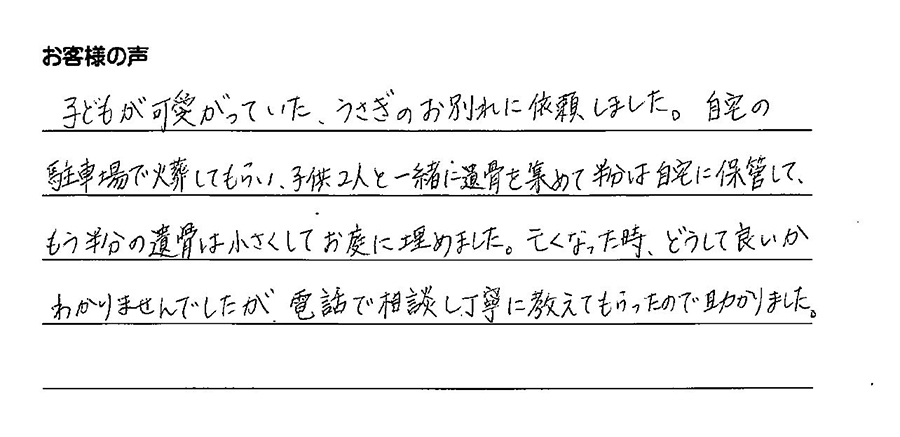 お客様の声
子どもが可愛がっていた、うさぎのお別れに依頼しました。自宅の
駐車場で火葬してもらい、子供2人と一緒に遺骨を集めて半分は自宅に保管して、
もう半分の遺骨は小さくしてお庭に埋めました。亡くなった時、どうして良いか
わかりませんでしたが、電話で相談し丁寧に教えてもらったので助かりました。